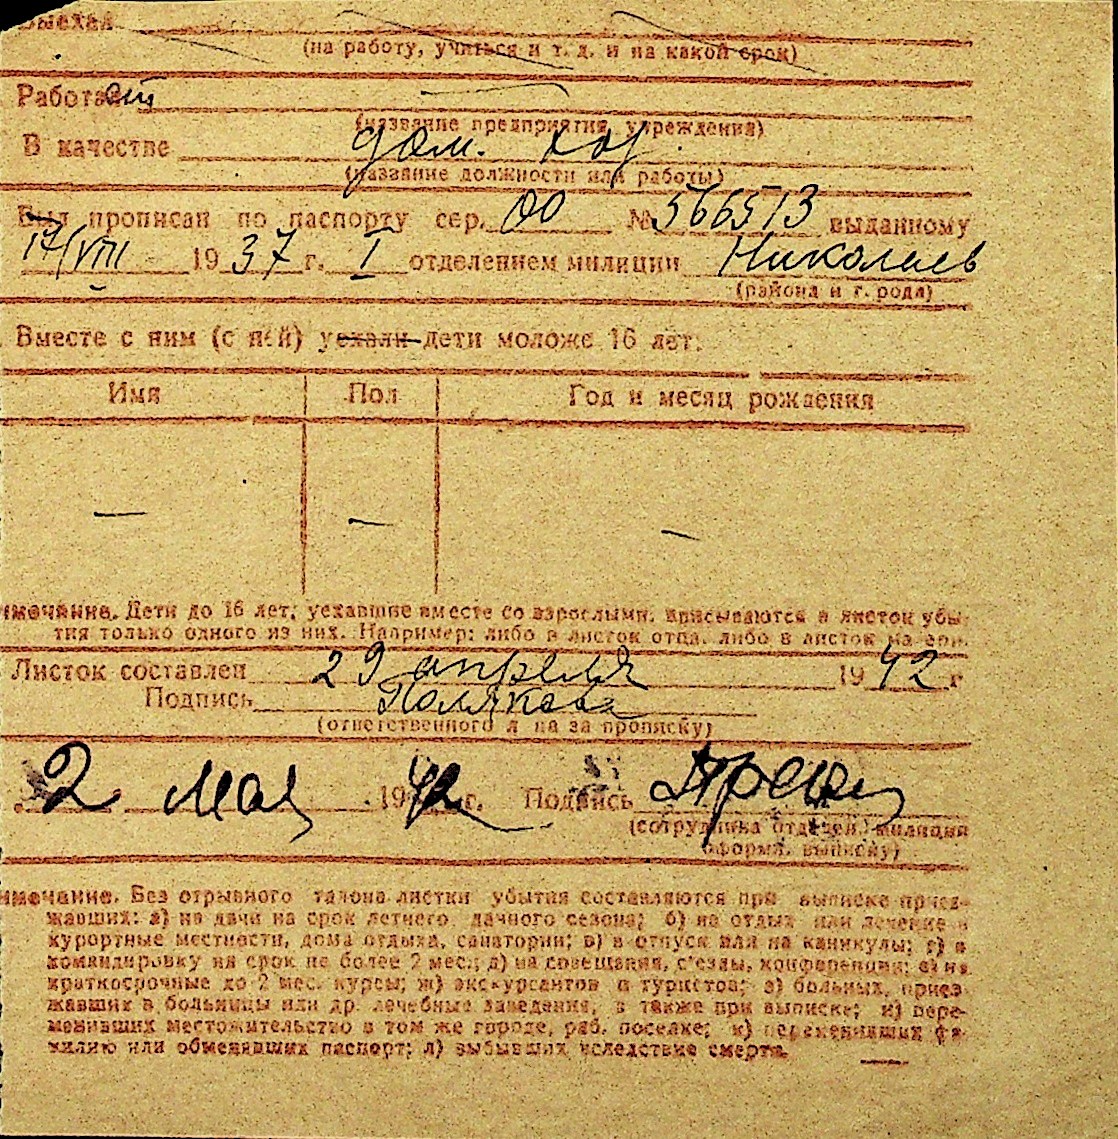 Выехал
(на работу, учиться и т. д. и на какой срок)
Работает
(название предприятия, учреждения)
В качестве дом. хоз.
(название должности или работы)
Был прописан по паспорту сер. ОО № 566513 выданному
17/VIII 1937 г. I отделением милиции Николаев
(района и города)
Вместе с ним (с ней) уехали дети моложе 16 лет:
Имя Пол Год и месяц рождения
— — —
имечание. Дети до 16 лет, уехавшие вместе со взрослыми, вписываются в листок убы-
тия только одного из них. Например: либо в листок отца, либо в листок матери.
Листок составлен 29 апреля 1942 г
Подпись Полякова
(ответственного лица за прописку)
2 мая 1942 г. Подпись
(сотрудника отделен. милиции
оформ. выписку)
имечание. Без отрывного талона листки убытия составляются при выписке приез-
жавших: а) на дачи на срок летнего дачного сезона; б) на отдых или лечение в
курортные местности, дома отдыха, санатории; в) в отпуск или на каникулы; г) в
командировку на срок не более 2 мес.; д) на совещания, с'езды, конференции; е) на
краткосрочные до 2 мес. курсы; ж) экскурсантов и туристов; з) больных, приез-
жавших в больницы или др. лечебные заведения, а также при выписке; и) пере-
менивших местожительство в том же городе, раб. поселке; к) переменивших фа-
милию или обменявших паспорт; л) выбывших вследствие смерти.